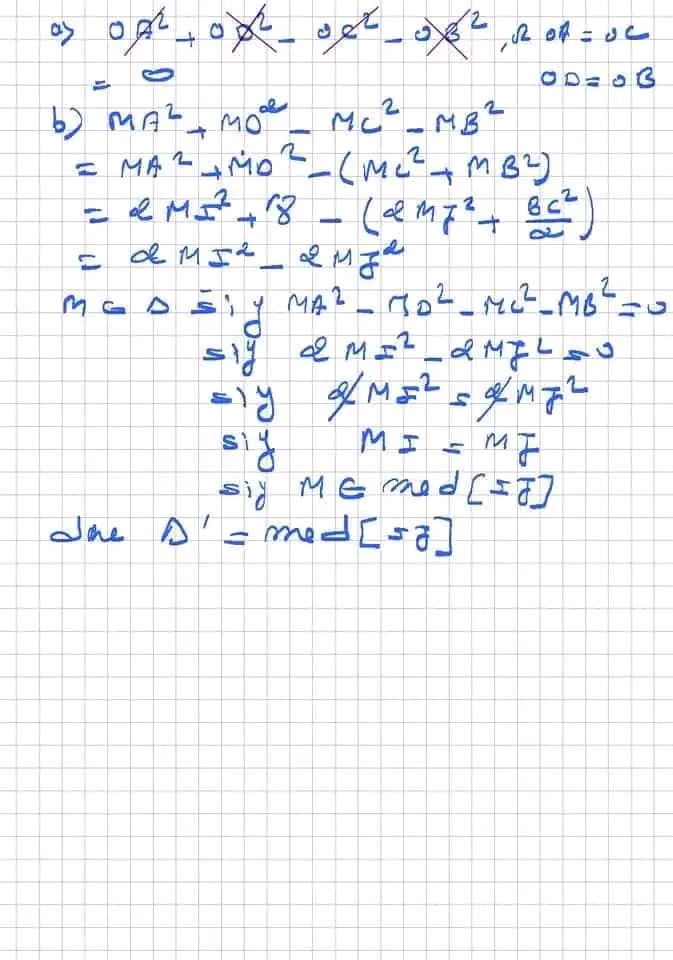 a) OA² + OD² - OC² - OB², OA = OC
= 0 OD = OB
b) MA² + MD² - MC² - MB²
= MA² + MD² - (MC² + MB²)
= 2MI² + 8 - (2MJ² + BC²/2)
= 2MI² - 2MJ²
M ∈ Δ siy MA² - MD² - MC² - MB² = 0
siy 2MI² - 2MJ² = 0
siy 2MI² = 2MJ²
siy MI = MJ
siy M ∈ med [IJ]
donc Δ' = med [IJ]